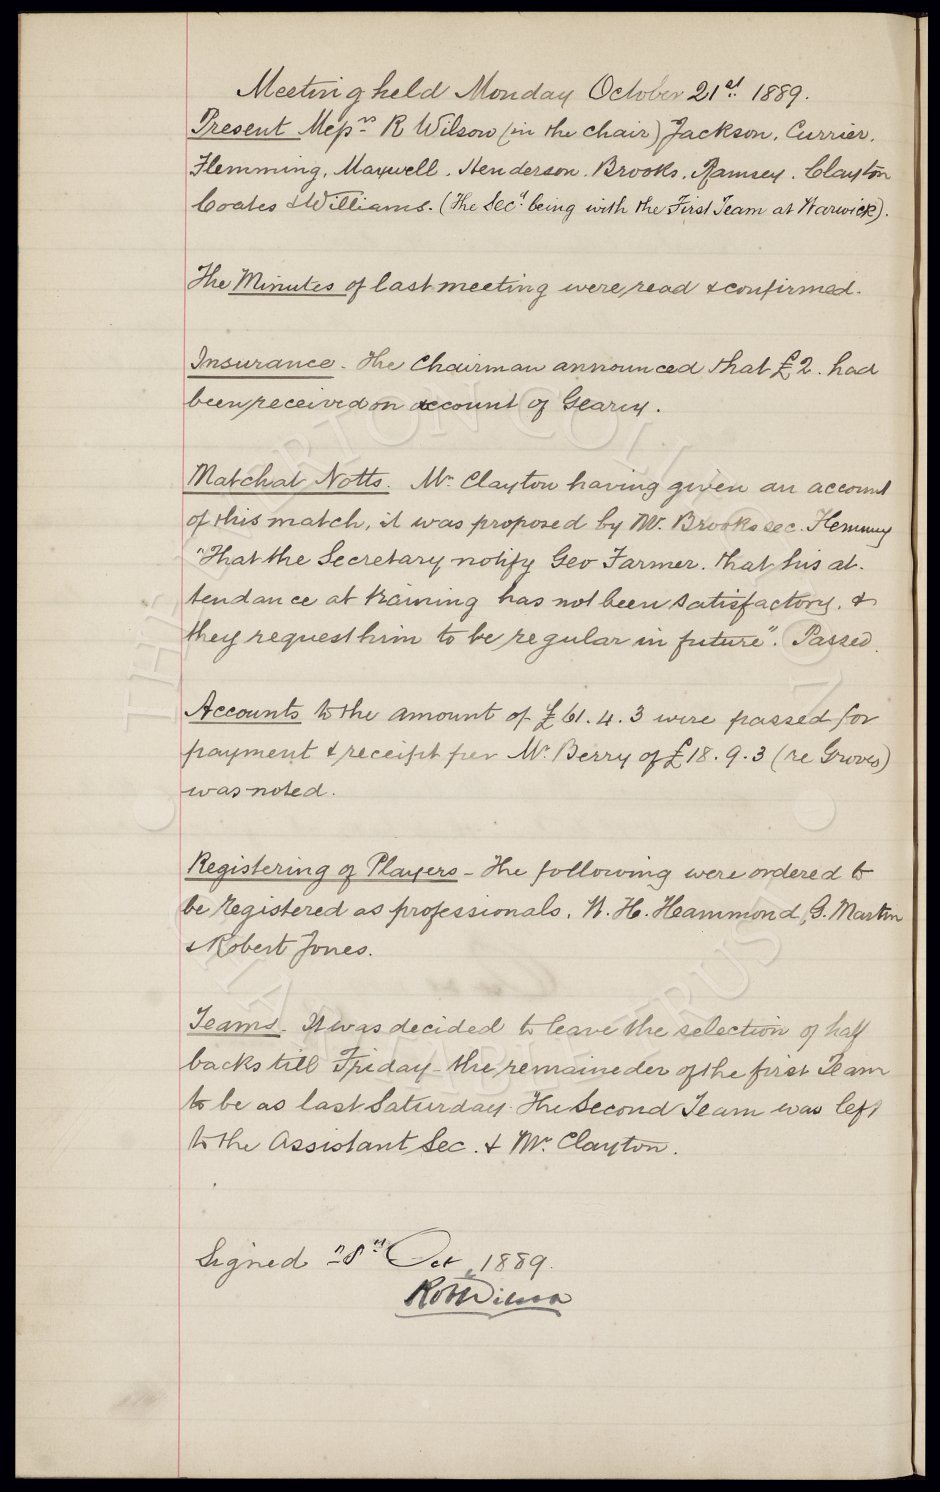 Meeting held Monday October 21st 1889.
Present Messrs R Wilson (in the chair) Jackson, Currier,
Flemming, Maxwell, Henderson, Brooks, Ramsey, Clayton
Coates & Williams. (The Secy being with the First Team at Warwick).
The Minutes of last meeting were read & confirmed.
Insurance - The Chairman announced that £2. had
been received on account of Geary.
Match at Notts. Mr Clayton having given an account
of this match, it was proposed by Mr. Brooks sec. Flemmg
"That the Secretary notify Geo Farmer. that his at-
tendance at training has not been satisfactory, &
they request him to be regular in future". Passed.
Accounts to the amount of £61.4.3 were passed for
payment & receipt per Mr Berry of £18.9.3 (re Groves)
was noted.
Registering of Players - The following were ordered to
be registered as professionals, W. H. Hammond, G. Martin
& Robert Jones.
Teams - It was decided to leave the selection of half
backs till Friday - the remaineder of the first Team
to be as last Saturday. The Second Team was left
to the Assistant Sec. & Mr. Clayton.
Signed 28th Oct 1889.
Robt Wilson
THE EVERTON COLLECTION
CHARITABLE TRUST